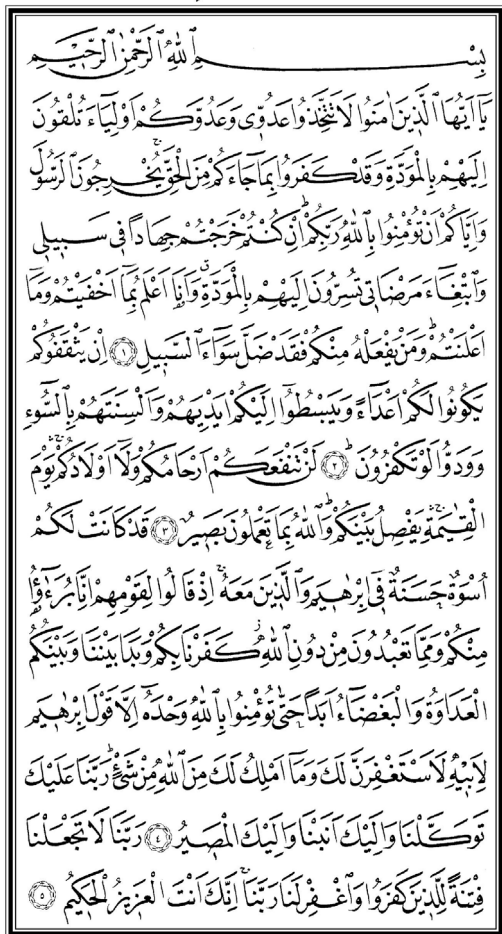 بِسْمِ اللّٰهِ الرَّحْمٰنِ الرَّح۪يمِ
يَٓا اَيُّهَا الَّذ۪ينَ اٰمَنُوا لَا تَتَّخِذُوا عَدُوّ۪ي وَعَدُوَّكُمْ اَوْلِيَٓاءَ تُلْقُونَ
اِلَيْهِمْ بِالْمَوَدَّةِ وَقَدْ كَفَرُوا بِمَا جَٓاءَكُمْ مِنَ الْحَقِّۚ يُخْرِجُونَ الرَّسُولَ
وَاِيَّاكُمْ اَنْ تُؤْمِنُوا بِاللّٰهِ رَبِّكُمْۜ اِنْ كُنْتُمْ خَرَجْتُمْ جِهَادًا ف۪ي سَب۪يل۪ي
وَابْتِغَٓاءَ مَرْضَات۪ي تُسِرُّونَ اِلَيْهِمْ بِالْمَوَدَّةِۗ وَاَنَا۬ اَعْلَمُ بِمَٓا اَخْفَيْتُمْ وَمَٓا
اَعْلَنْتُمْۜ وَمَنْ يَفْعَلْهُ مِنْكُمْ فَقَدْ ضَلَّ سَوَٓاءَ السَّب۪يلِ ﴿١﴾ اِنْ يَثْقَفُوكُمْ
يَكُونُوا لَكُمْ اَعْدَٓاءً وَيَبْسُطُٓوا اِلَيْكُمْ اَيْدِيَهُمْ وَاَلْسِنَتَهُمْ بِالسُّٓوءِ
وَوَدُّوا لَوْ تَكْفُرُونَۜ ﴿٢﴾ لَنْ تَنْفَعَكُمْ اَرْحَامُكُمْ وَلَٓا اَوْلَادُكُمْۚ يَوْمَ
الْقِيٰمَةِۚ يَفْصِلُ بَيْنَكُمْۜ وَاللّٰهُ بِمَا تَعْمَلُونَ بَص۪يرٌ ﴿٣﴾ قَدْ كَانَتْ لَكُمْ
اُسْوَةٌ حَسَنَةٌ ف۪ٓي اِبْرٰه۪يمَ وَالَّذ۪ينَ مَعَهُۚ اِذْ قَالُوا لِقَوْمِهِمْ اِنَّا بُرَءٰٓؤُ۬ا
مِنْكُمْ وَمِمَّا تَعْبُدُونَ مِنْ دُونِ اللّٰهِۘ كَفَرْنَا بِكُمْ وَبَدَا بَيْنَنَا وَبَيْنَكُمُ
الْعَدَاوَةُ وَالْبَغْضَٓاءُ اَبَدًا حَتّٰى تُؤْمِنُوا بِاللّٰهِ وَحْدَهُٓ اِلَّا قَوْلَ اِبْرٰه۪يمَ
لِاَب۪يهِ لَاَسْتَغْفِرَنَّ لَكَ وَمَٓا اَمْلِكُ لَكَ مِنَ اللّٰهِ مِنْ شَيْءٍۜ رَبَّنَا عَلَيْكَ
تَوَكَّلْنَا وَاِلَيْكَ اَنَبْنَا وَاِلَيْكَ الْمَص۪يرُ ﴿٤﴾ رَبَّنَا لَا تَجْعَلْنَا
فِتْنَةً لِلَّذ۪ينَ كَفَرُوا وَاغْفِرْ لَنَا رَبَّنَاۚ اِنَّكَ اَنْتَ الْعَز۪يزُ الْحَك۪يمُ ﴿٥﴾